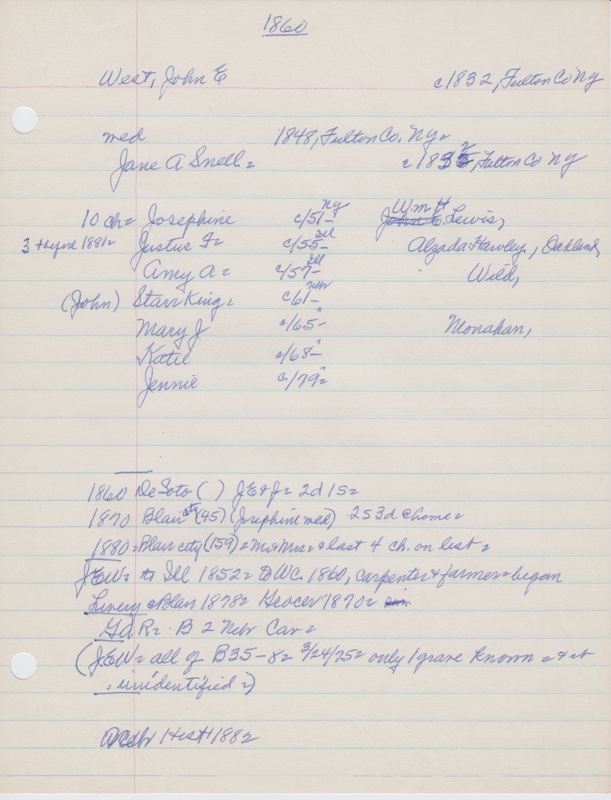 1860
West, John E c1832, Fulton Co NY
med 1848, Fulton Co. NY=
Jane A Snell= c 1832, Fulton Co NY
10 ch= Josephine c/51- NY Wm H Lewis,
3 + lysne 1881= Justus F= c/55- Ill Alzada Hawley, Oakland,
Amy A= c/57- Ill Wild,
(John) Starr King= c61- Nebr
Mary J c/65- " Monahan,
Katie c/68- "
Jennie c/79 "
1860 DeSoto ( ) JE & J= 2d 1s=
1870 Blair city (45) (Josephine med) 2s 3d @ home=
1880= Blair city (159)= Mr & Mrs= & last 4 ch. on list=
JEW= to Ill 1852= @ WC. 1860, carpenter & farmer= began
Livery @ Blair 1878= Grocer 1870=
Gd R= B 2 Nebr Cav=
(JEW= all of B35-8= 3/24/25= only 1 grave known = & it
. unidentified=)
Hist 1882